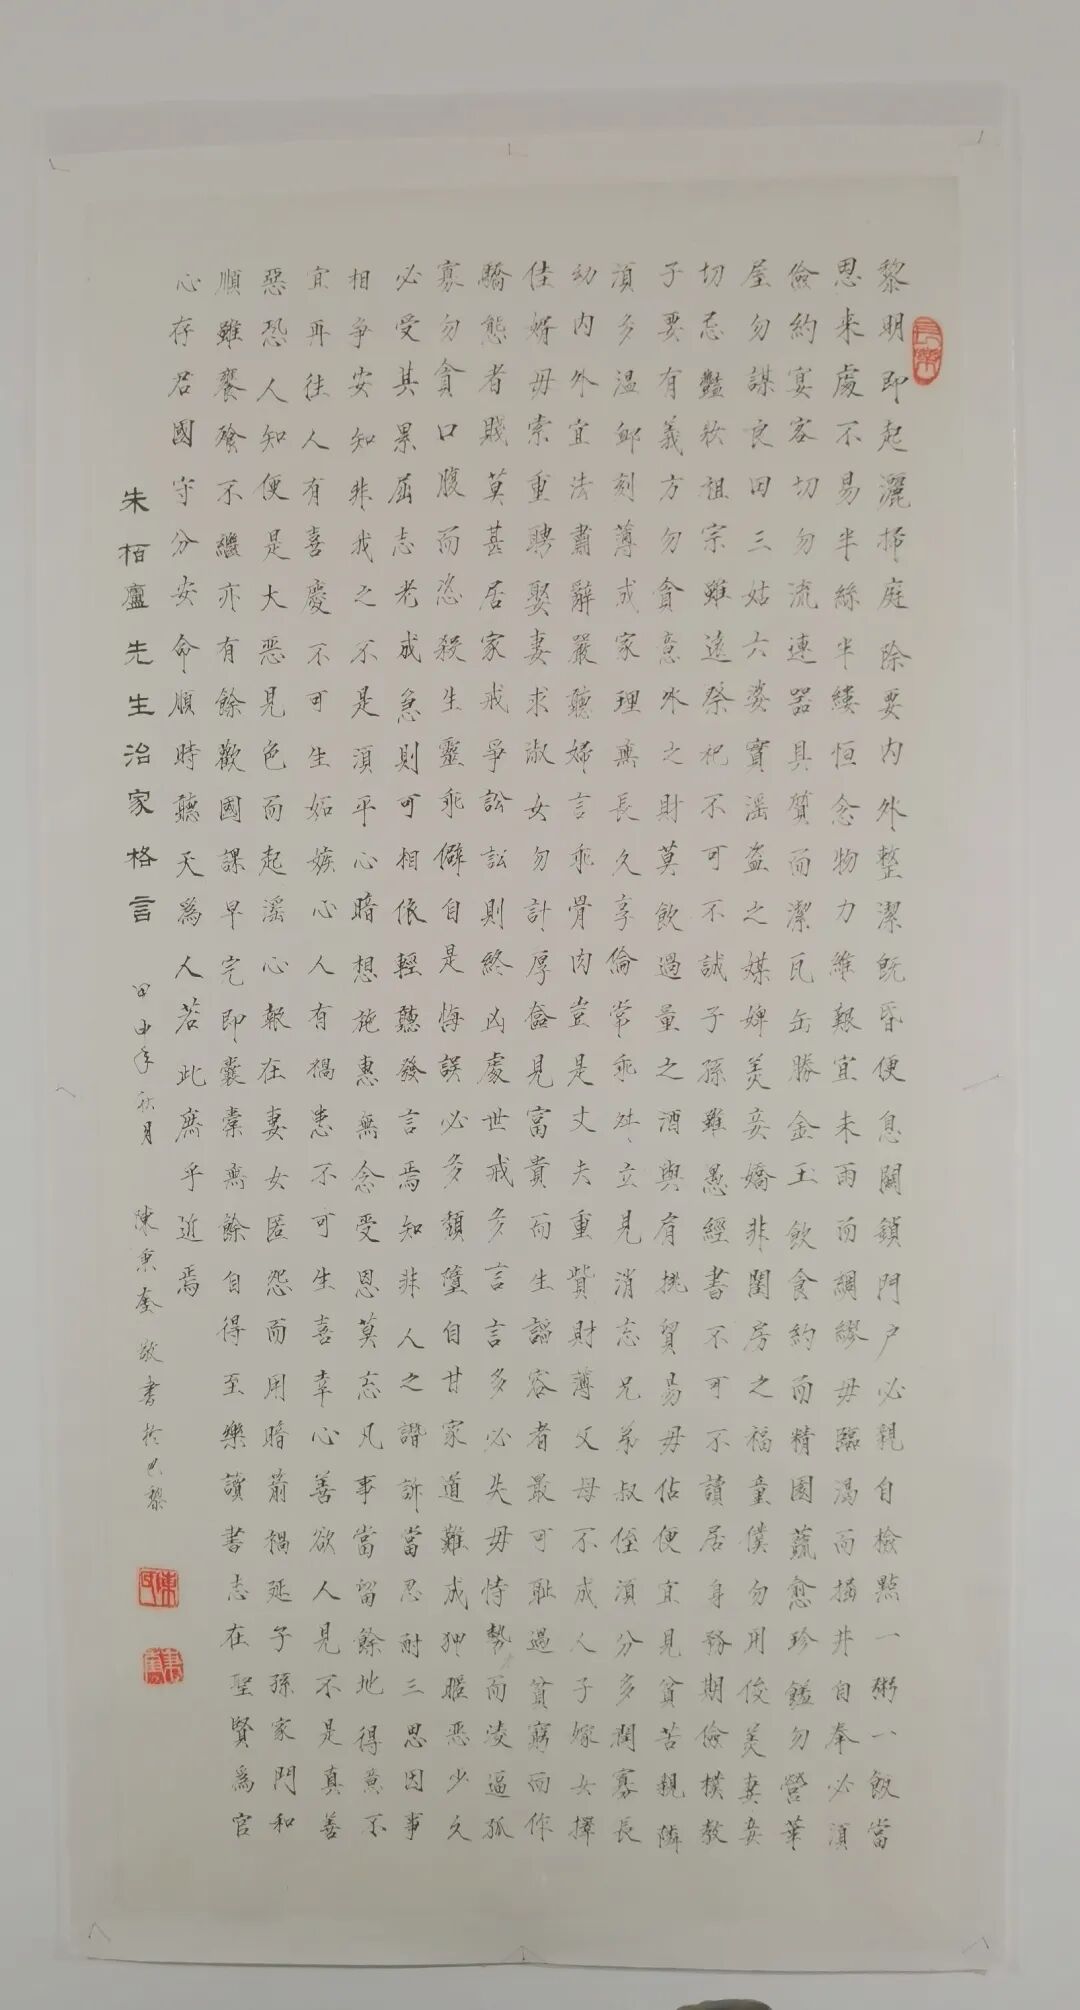 黎明即起灑掃庭除要內外整潔旣昏便息關鎖門户必親自檢點一粥一飯當
思来處不易半絲半縷恒念物力維艱宜未雨而綢繆毋臨渴而掘井自奉必湏
儉約宴客切勿流連器具質而潔瓦缶勝金玉飲食約而精園蔬愈珍饈勿營華
屋勿謀良田三姑六婆實滛盗之媒婢美妾嬌非閨房之福童僕勿用俊美妻妾
切忌豔妝祖宗雖遠祭祀不可不誠子孫雖愚經書不可不讀居身務期儉樸教
子要有義方勿貪意外之財莫飲過量之酒與肩挑貿易毋佔便宜見貧苦親隣
湏多温卹刻薄成家理無長久享倫常乖舛立見消忘兄弟叔侄湏分多潤寡長
幼內外宜法肅辭嚴聽婦言乖骨肉豈是丈夫重貲財薄父母不成人子嫁女擇
佳婿毋索重聘娶妻求淑女勿計厚奩見富貴而生諂容者最可耻遇貧窮而作
驕態者賤莫甚居家戒爭訟訟則終凶處世戒多言言多必失毋恃勢而凌逼孤
寡勿貪口腹而恣殺生靈乖僻自是悔誤必多頹墮自甘家道難成狎暱恶少久
必受其累屈志老成急則可相依輕聽發言焉知非人之譖訴當忍耐三思因事
相争安知非我之不是湏平心暗想施惠無念受恩莫忘凡事當留餘地得意不
宜再往人有喜慶不可生妬嫉心人有禍患不可生喜幸心善欲人見不是真善
惡恐人知便是大恶見色而起滛心報在妻女匿怨而用暗箭禍延子孫家門和
順雖饔飧不繼亦有餘歡國課早完即囊橐無餘自得至樂讀書志在聖賢為官
心存君國守分安命順時聽天爲人若此庶乎近焉
朱栢廬先生治家格言
甲申年秋月 陳秉奎敬書於巴黎
長樂